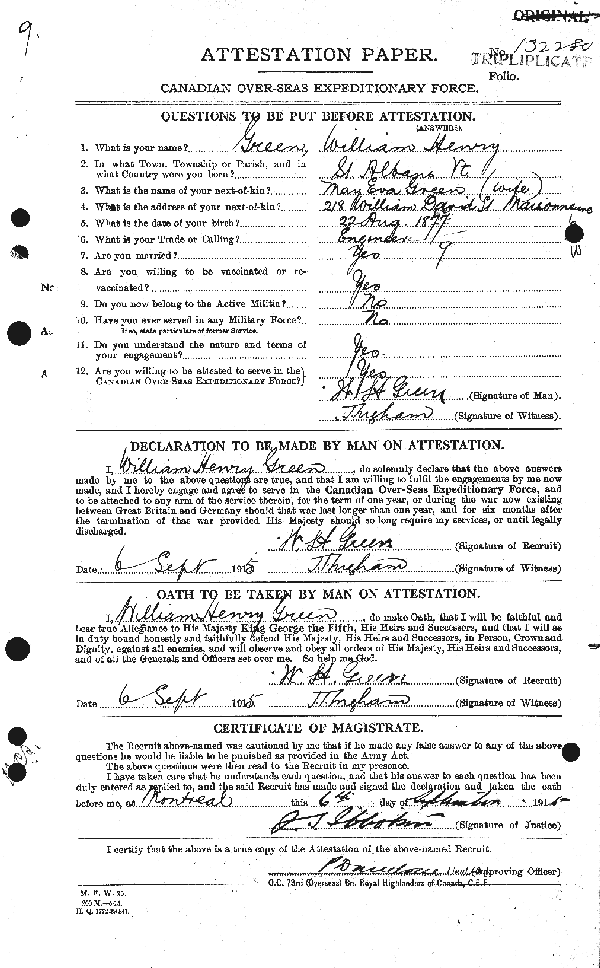 ORIGINAL
9.
ATTESTATION PAPER.
No. 132280
TRIPLIPLICATE
Folio.
CANADIAN OVER-SEAS EXPEDITIONARY FORCE.
QUESTIONS TO BE PUT BEFORE ATTESTATION.
(ANSWERS)
1. What is your name? Green, William Henry
2. In what Town, Township or Parish, and in
what Country were you born? St Albans Vt
3. What is the name of your next-of-kin? May Eva Green (Wife)
4. What is the address of your next-of-kin? 218 William David St Maisonneuve
5. What is the date of your birth? 22 Aug 1877
6. What is your Trade or Calling? Engineer
7. Are you married? Yes
8. Are you willing to be vaccinated or re-
vaccinated? Yes
9. Do you now belong to the Active Militia? No
10. Have you ever served in any Military Force? No
If so, state particulars of former Service.
11. Do you understand the nature and terms of
your engagement? Yes
12. Are you willing to be attested to serve in the
CANADIAN OVER-SEAS EXPEDITIONARY FORCE? Yes
W H Green (Signature of Man).
(Signature of Witness).
DECLARATION TO BE MADE BY MAN ON ATTESTATION.
I, William Henry Green, do solemnly declare that the above answers
made by me to the above questions are true, and that I am willing to fulfil the engagements by me now
made, and I hereby engage and agree to serve in the Canadian Over-Seas Expeditionary Force, and
to be attached to any arm of the service therein, for the term of one year, or during the war now existing
between Great Britain and Germany should that war last longer than one year, and for six months after
the termination of that war provided His Majesty should so long require my services, or until legally
discharged.
W H Green (Signature of Recruit)
Date 6 Sept 1915 (Signature of Witness)
OATH TO BE TAKEN BY MAN ON ATTESTATION.
I, William Henry Green, do make Oath, that I will be faithful and
bear true Allegiance to His Majesty King George the Fifth, His Heirs and Successors, and that I will as
in duty bound honestly and faithfully defend His Majesty, His Heirs and Successors, in Person, Crown and
Dignity, against all enemies, and will observe and obey all orders of His Majesty, His Heirs and Successors,
and of all the Generals and Officers set over me. So help me God.
W. H. Green (Signature of Recruit)
Date 6 Sept 1915 (Signature of Witness)
CERTIFICATE OF MAGISTRATE.
The Recruit above-named was cautioned by me that if he made any false answer to any of the above
questions he would be liable to be punished as provided in the Army Act.
The above questions were then read to the Recruit in my presence.
I have taken care that he understands each question, and that his answer to each question has been
duly entered as replied to, and the said Recruit has made and signed the declaration and taken the oath
before me, at Montreal this 6th day of September 1915
(Signature of Justice)
I certify that the above is a true copy of the Attestation of the above-named Recruit.
(Approving Officer)
O.C. 73rd Overseas Bn. Royal Highlanders of Canada, C.E.F.
M. F. W. 23.